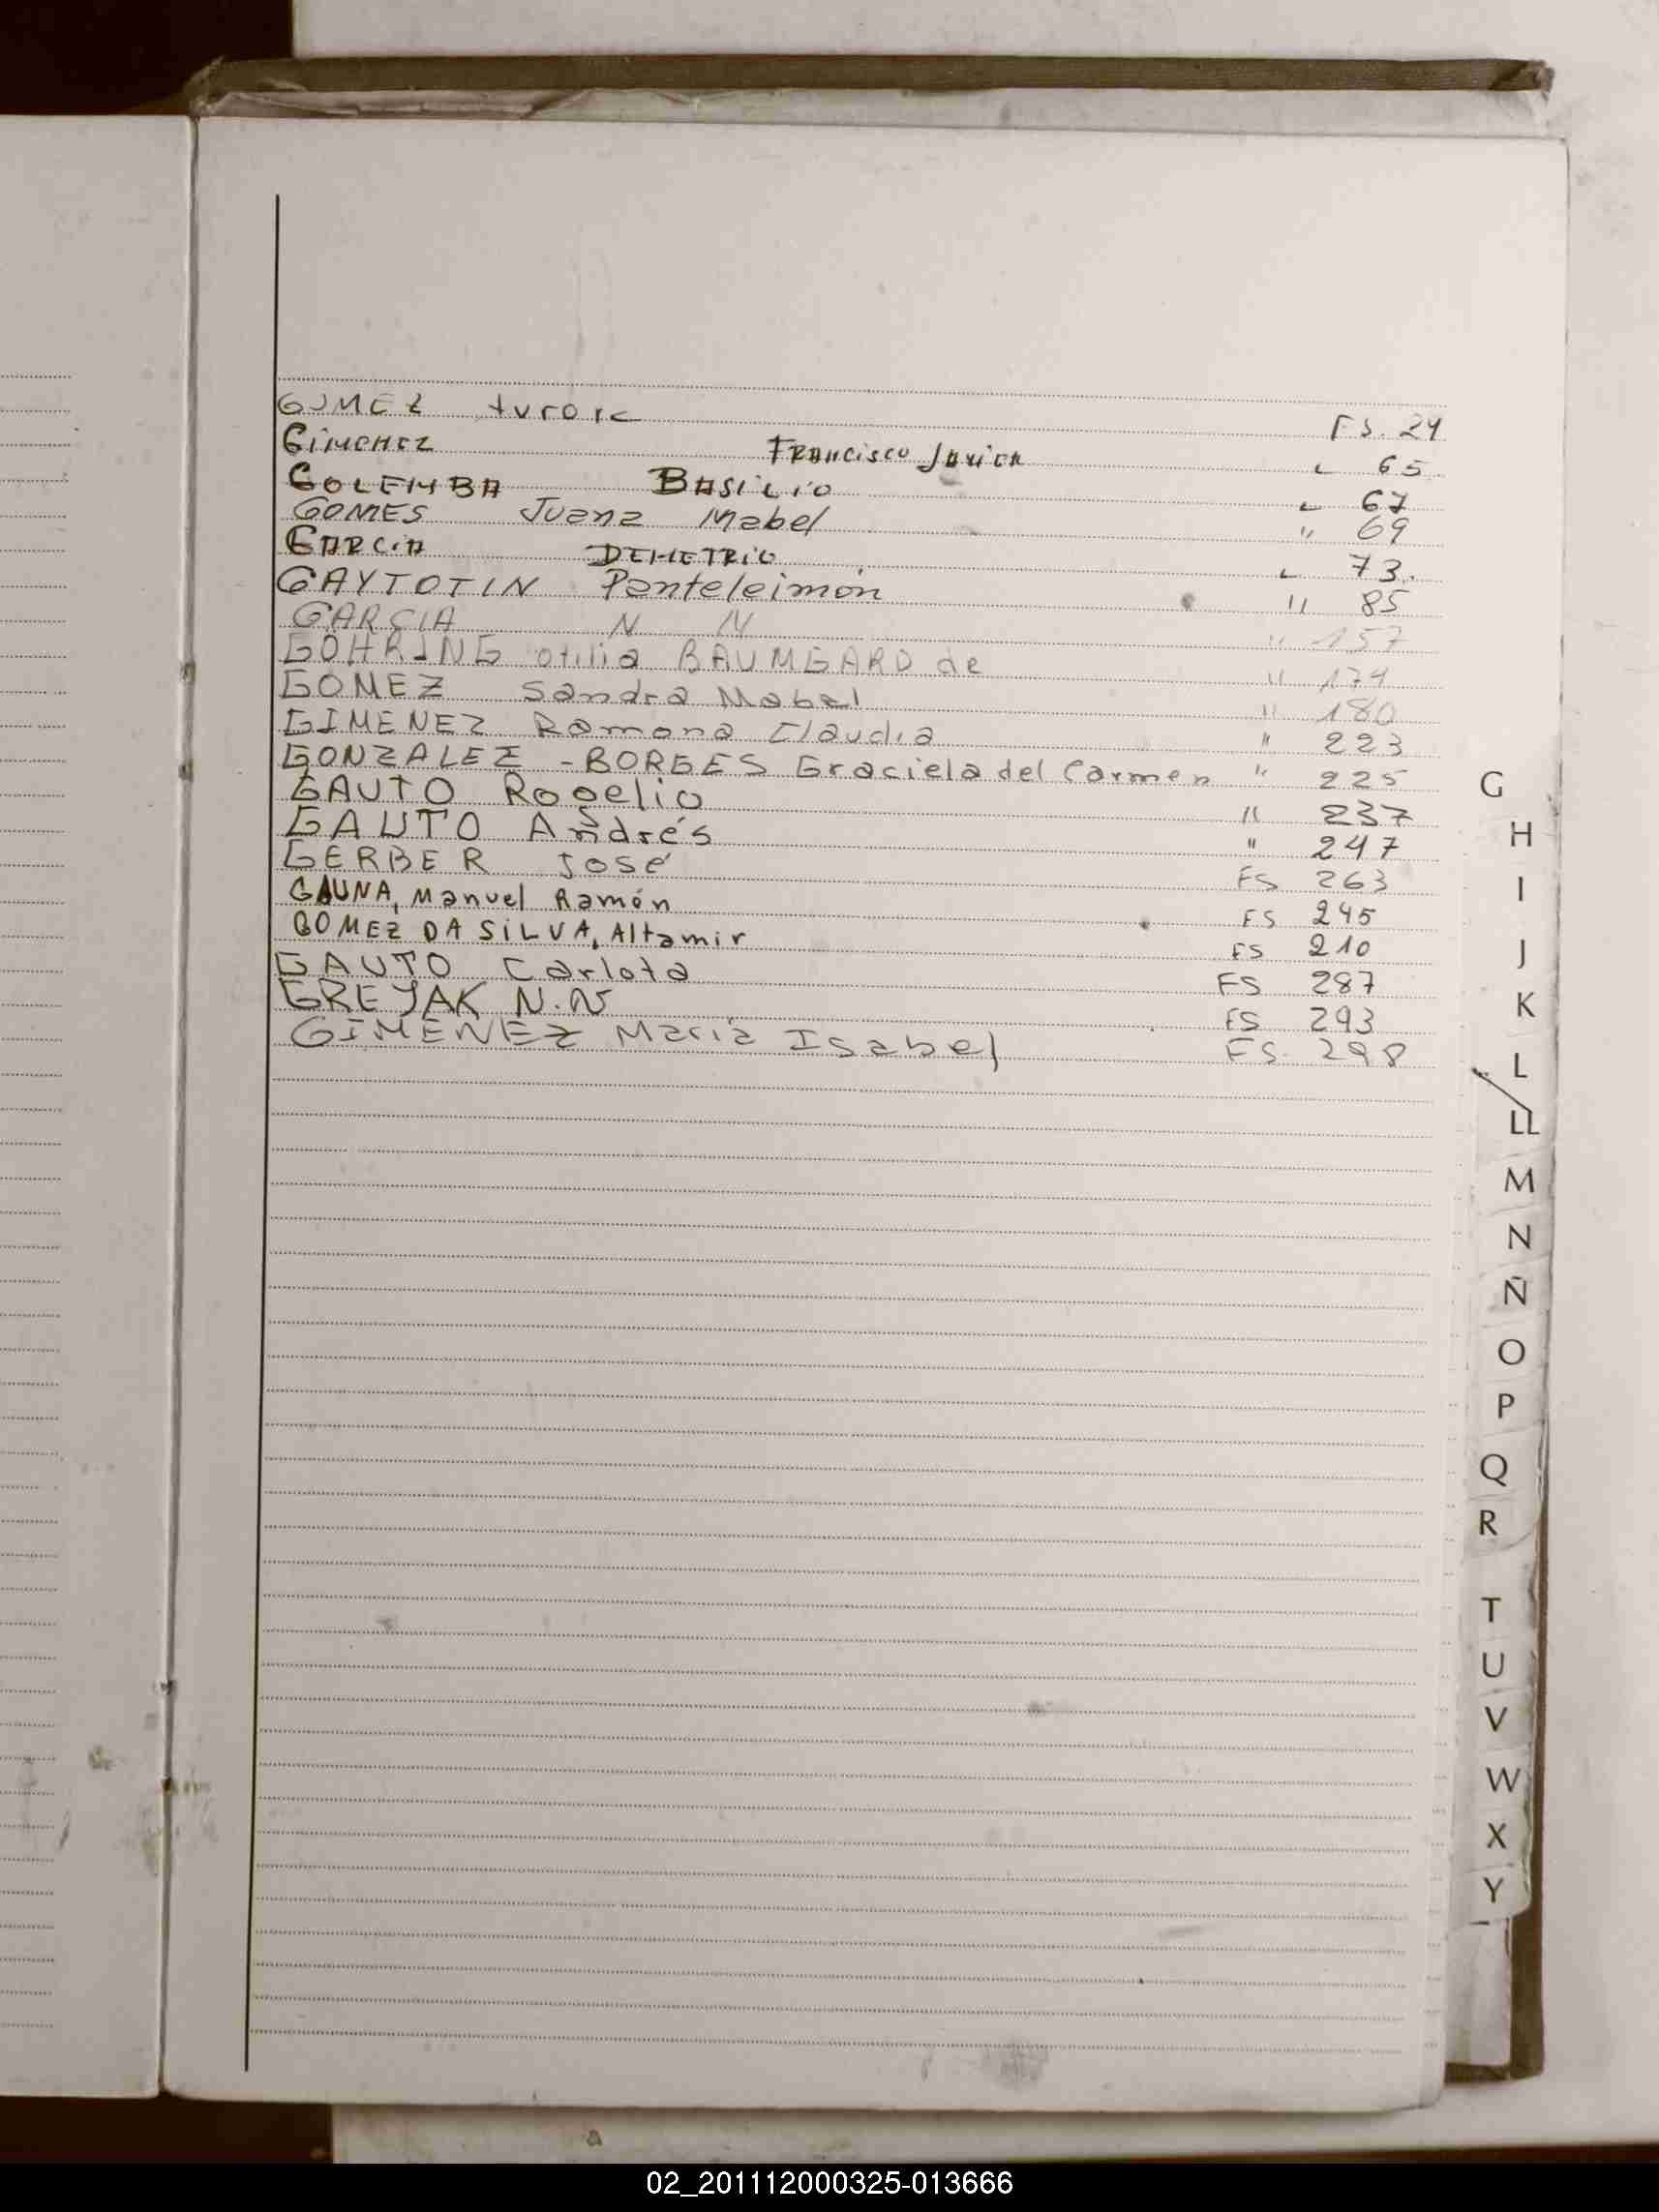 GOMEZ Aurora FS. 24
GIMENEZ Francisco Javier " 65
GOLEMBA BASILIO " 67
GOMES Juana Mabel " 69
GARCIA DEMETRIO " 73.
GAYTOTIN Panteleimón " 85
GARCIA N N " 157
GOHRING otilia BAUMGARD de " 174
GOMEZ Sandra Mabel " 180
GIMENEZ Ramona Claudia " 223
GONZALEZ - BORGES Graciela del Carmen " 225
GAUTO Rogelio " 237
GAUTO Andrés " 247
GERBER José FS 263
GAUNA, Manuel Ramón FS 245
GOMEZ DA SILVA, Altamir FS 210
GAUTO Carlota FS 287
GREJAK N.N FS 293
GIMENEZ María Isabel FS. 298
G
H
I
J
K
L
LL
M
N
Ñ
O
P
Q
R
T
U
V
W
X
Y
02_201112000325-013666